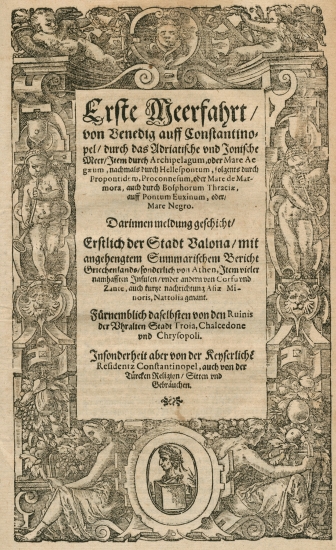 Erste Meerfahrt/
von Venedig auff Constantino-
pel/ durch das Adriatische vnd Jonische
Meer/ Item durch Archipelagum, oder Mare Ae-
gæum, nachmals durch Hellespontum, folgents durch
Propontidem, Proconnesum, oder Mare de Mar-
mora, auch durch Bosphorum Thraciæ,
auff Pontum Euxinum, oder/
Mare Negro.
Darinnen meldung geschicht/
Erstlich der Stadt Valona/ mit
angehengtem Summarischem Bericht
Griechenlands/ sonderlich von Athen, Item vieler
namhafften Insulen/ vnder andern von Corfu vnd
Zante, auch kurtze nachrichtung Asiæ Mi-
noris, Nattolia genant.
Fürnemblich daselbsten von den Ruinis
der Vhralten Stadt Troia, Chalcedone
vnd Chrysopoli.
Insonderheit aber von der Keyserlichē
Residentz Constantinopel, auch von der
Türcken Religion/ Sitten vnd
Gebräuchen.